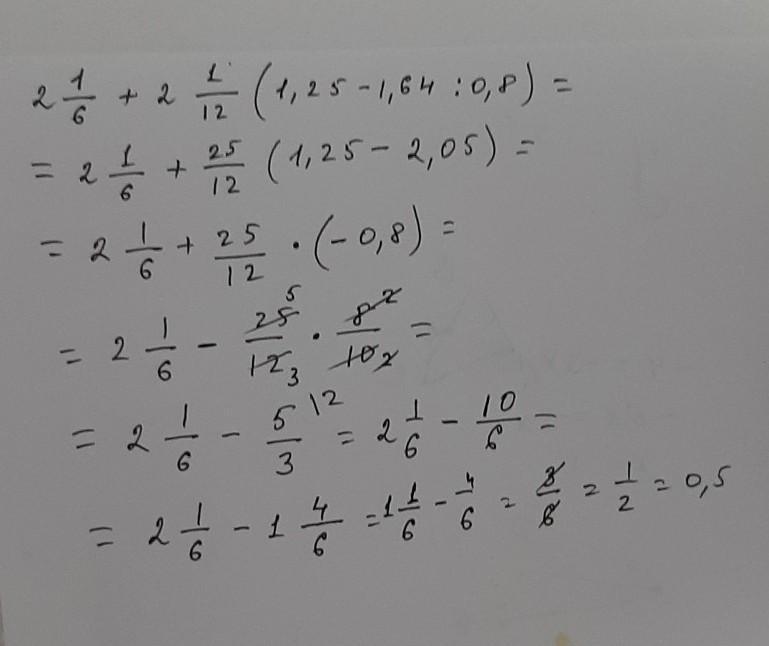 2 1/6 + 2 1/12 (1,25 - 1,64 : 0,8) =
= 2 1/6 + 25/12 (1,25 - 2,05) =
= 2 1/6 + 25/12 · (- 0,8) =
= 2 1/6 - 25 5/12 3 · 8 2/10 2 =
= 2 1/6 - 5/3 \2 = 2 1/6 - 10/6 =
= 2 1/6 - 1 4/6 = 1 1/6 - 4/6 = 3/6 = 1/2 = 0,5